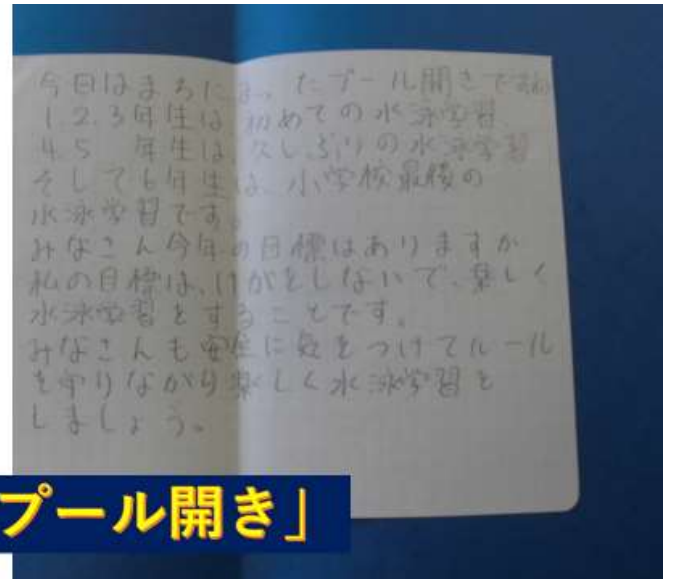 今日はまちにまったプール開きですね
1.2.3年生は初めての水泳学習、
4.5 年生は、久しぶりの水泳学習
そして6年生は、小学校最後の
水泳学習です。
みなさん今年の目標はありますか
私の目標は、けがをしないで、楽しく
水泳学習をすることです。
みなさんも安全に気をつけてルール
を守りながら楽しく水泳学習を
しましょう。
プール開き」